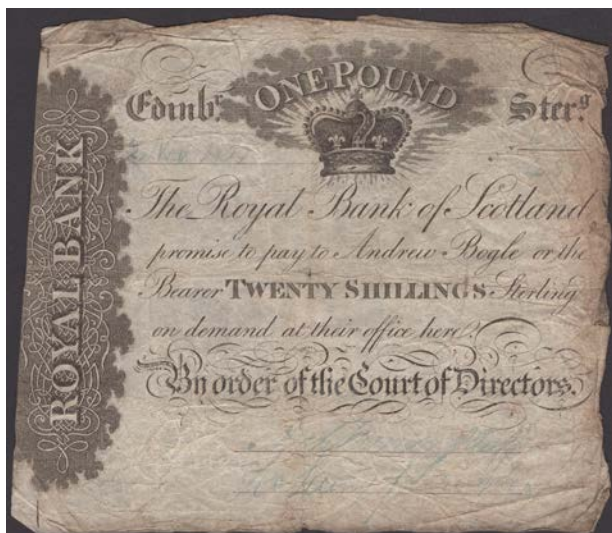 ROYAL BANK
ONE POUND
Edinbr. Sterg.
The Royal Bank of Scotland
promise to pay to Andrew Bogle or the
Bearer TWENTY SHILLINGS Sterling
on demand at their office here.
By order of the Court of Directors.